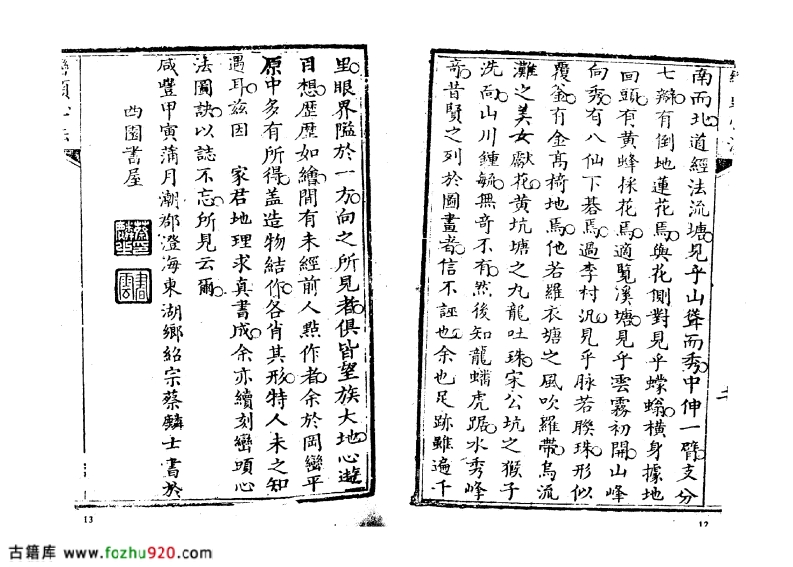 南而北道經法流塘見乎山聳而秀中伸一臂支分
七瓣有倒地蓮花焉與花側對見乎螃蟹橫身據地
回頭有黃蜂採花焉適覽溪塘見乎雲霧初開山峰
向秀有八仙下碁焉過李村汎見乎脉若聯珠形似
覆釜有金髙椅地焉他若羅衣塘之風吹羅帶烏流
灘之美女獻花黃坑塘之九龍吐珠宋公坑之猴子
洗向山川鍾毓無奇不有然後知龍蟠虎踞水秀峰
奇昔賢之列於圖畫者信不誣也余也足跡雖遍千
里眼界隘於一方向之所見者俱皆望族大地心遊
目想歷歷如繪間有未經前人點作者余於岡巒平
原中多有所得蓋造物結作各肖其形特人未之知
遇耳茲因 家君地理求真書成余亦續刻巒頭心
法圖訣以誌不忘所見云爾
咸豐甲寅蒲月潮郡澄海東湖鄉紹宗蔡麟士書於
西園書屋
13
12
古籍库 www.fozhu920.com